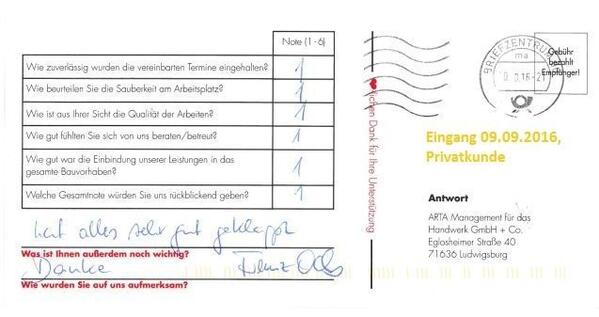 Note (1 - 6)
Wie zuverlässig wurden die vereinbarten Termine eingehalten? 1
Wie beurteilen Sie die Sauberkeit am Arbeitsplatz? 1
Wie ist aus Ihrer Sicht die Qualität der Arbeiten? 1
Wie gut fühlten Sie sich von uns beraten/betreut? 1
Wie gut war die Einbindung unserer Leistungen in das
gesamte Bauvorhaben? 1
Welche Gesamtnote würden Sie uns rückblickend geben? 1
hat alles sehr gut geklappt
Was ist Ihnen außerdem noch wichtig?
Danke Franz
Wie wurden Sie auf uns aufmerksam?
lichen Dank für Ihre Unterstützung
BRIEFZENTRUM
ma
Gebühr
bezahlt
Empfänger!
Eingang 09.09.2016,
Privatkunde
Antwort
ARTA Management für das
Handwerk GmbH + Co.
Eglosheimer Straße 40
71636 Ludwigsburg